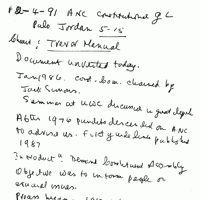 2-4-91 ANC Constitutional g L
Pulo Jordan 5-15
Trevor Manuel
Document unveiled today.
Jan 1986. Cord. Com. chaired by
Jack Simons.
Seminar at UWC discussed in great depth
After 1976 students descended on ANC
to advise us. First guidelines published
1987
Introduct. Demand Constituent Assembly
Objective was to inform people on
around issues.
Press